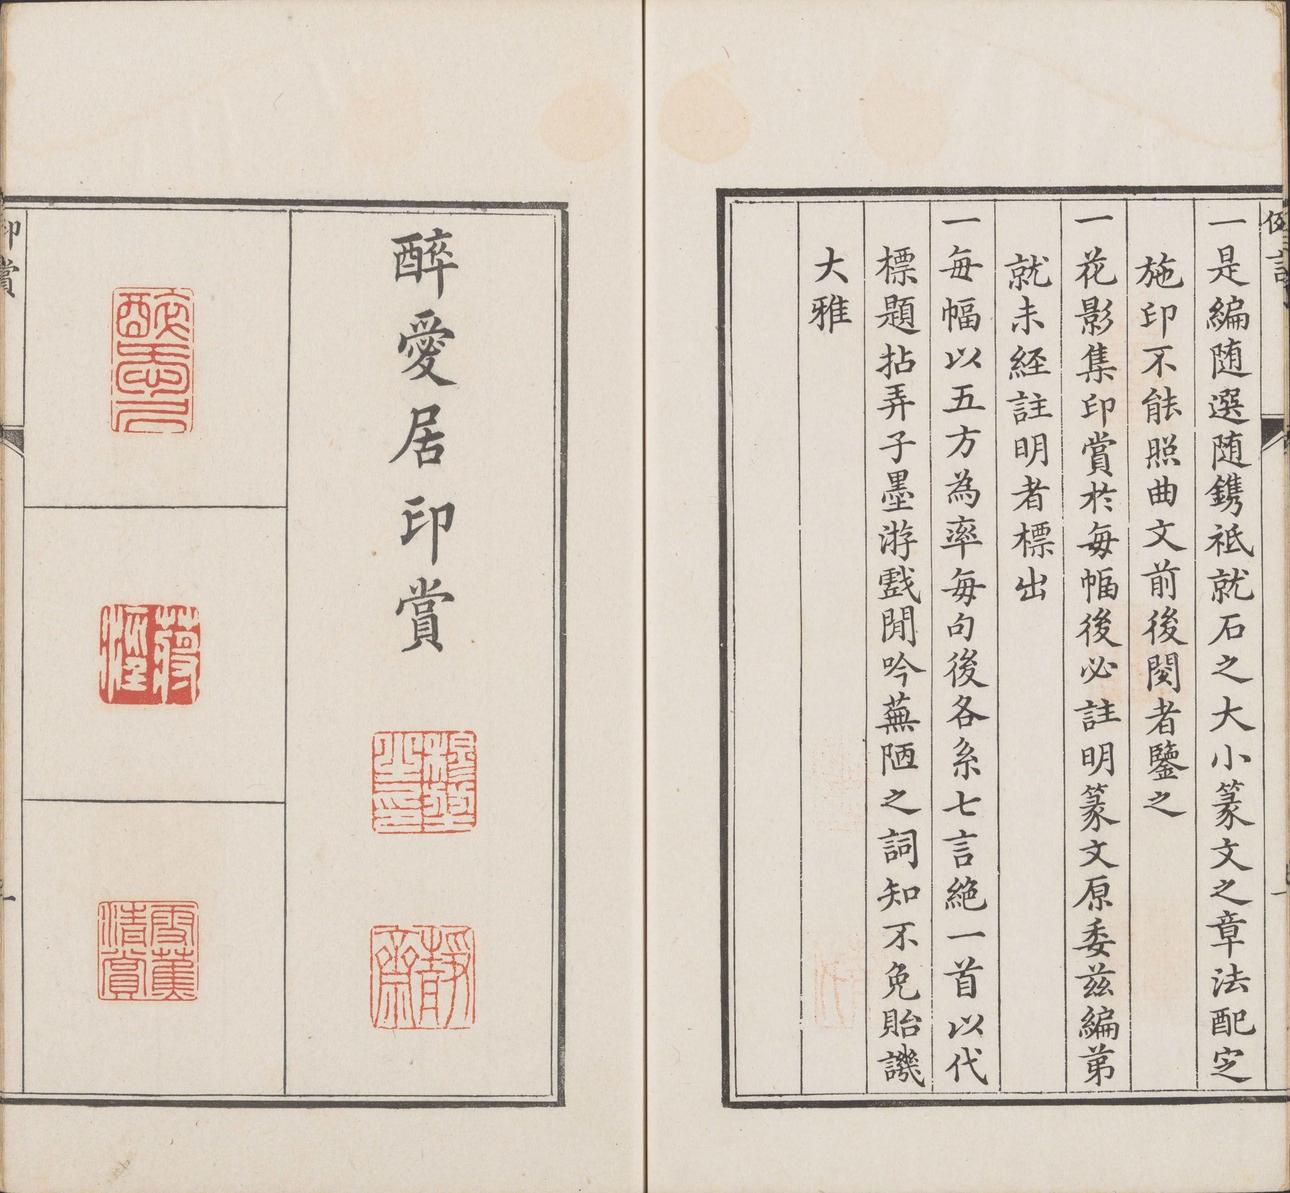 一是編随選随鐫祗就石之大小篆文之章法配定
施印不能照曲文前後閱者鑒之
一花影集印賞於每幅後必註明篆文原委茲編第
就未經註明者標出
一每幅以五方為率每句後各系七言絶一首以代
標題拈弄子墨游戲閒吟蕪陋之詞知不免貽譏
大雅
醉愛居印賞
靜齋
蔣瀅
雪蕉
清賞
印賞